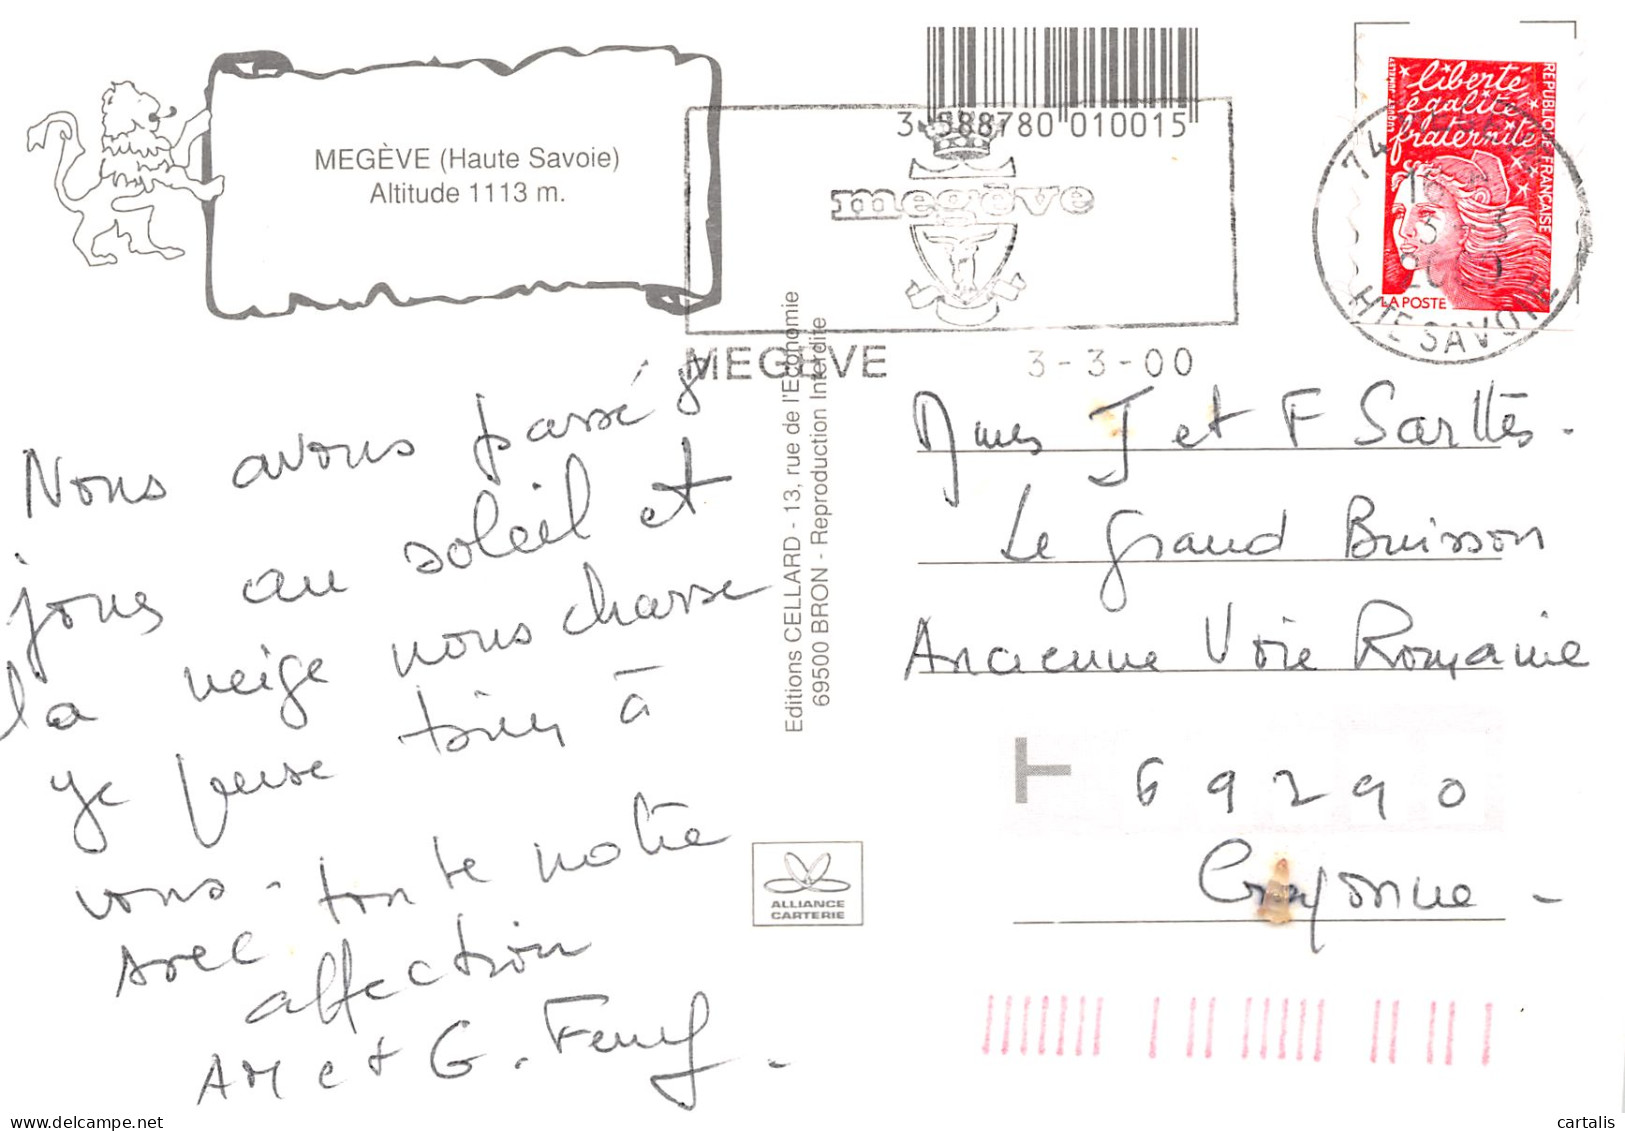 MEGÈVE (Haute Savoie)
Altitude 1113 m.
3 588780 010015
megève
MEGEVE 3-3-00
liberté
égalité
fraternité
RÉPUBLIQUE FRANÇAISE
LA POSTE
74
HTE SAVOIE
Nous avons passé 8
jours au soleil et
la neige nous chasse
je pense bien à
vous - toute notre
avec
affection
AM et G.
Editions CELLARD - 13, rue de l'Economie
69500 BRON - Reproduction Interdite
ALLIANCE
CARTERIE
Mmes J et F
Le Grand Buisson
Ancienne Voie Romaine
69290
Craponne -
cartalis
delcampe.net